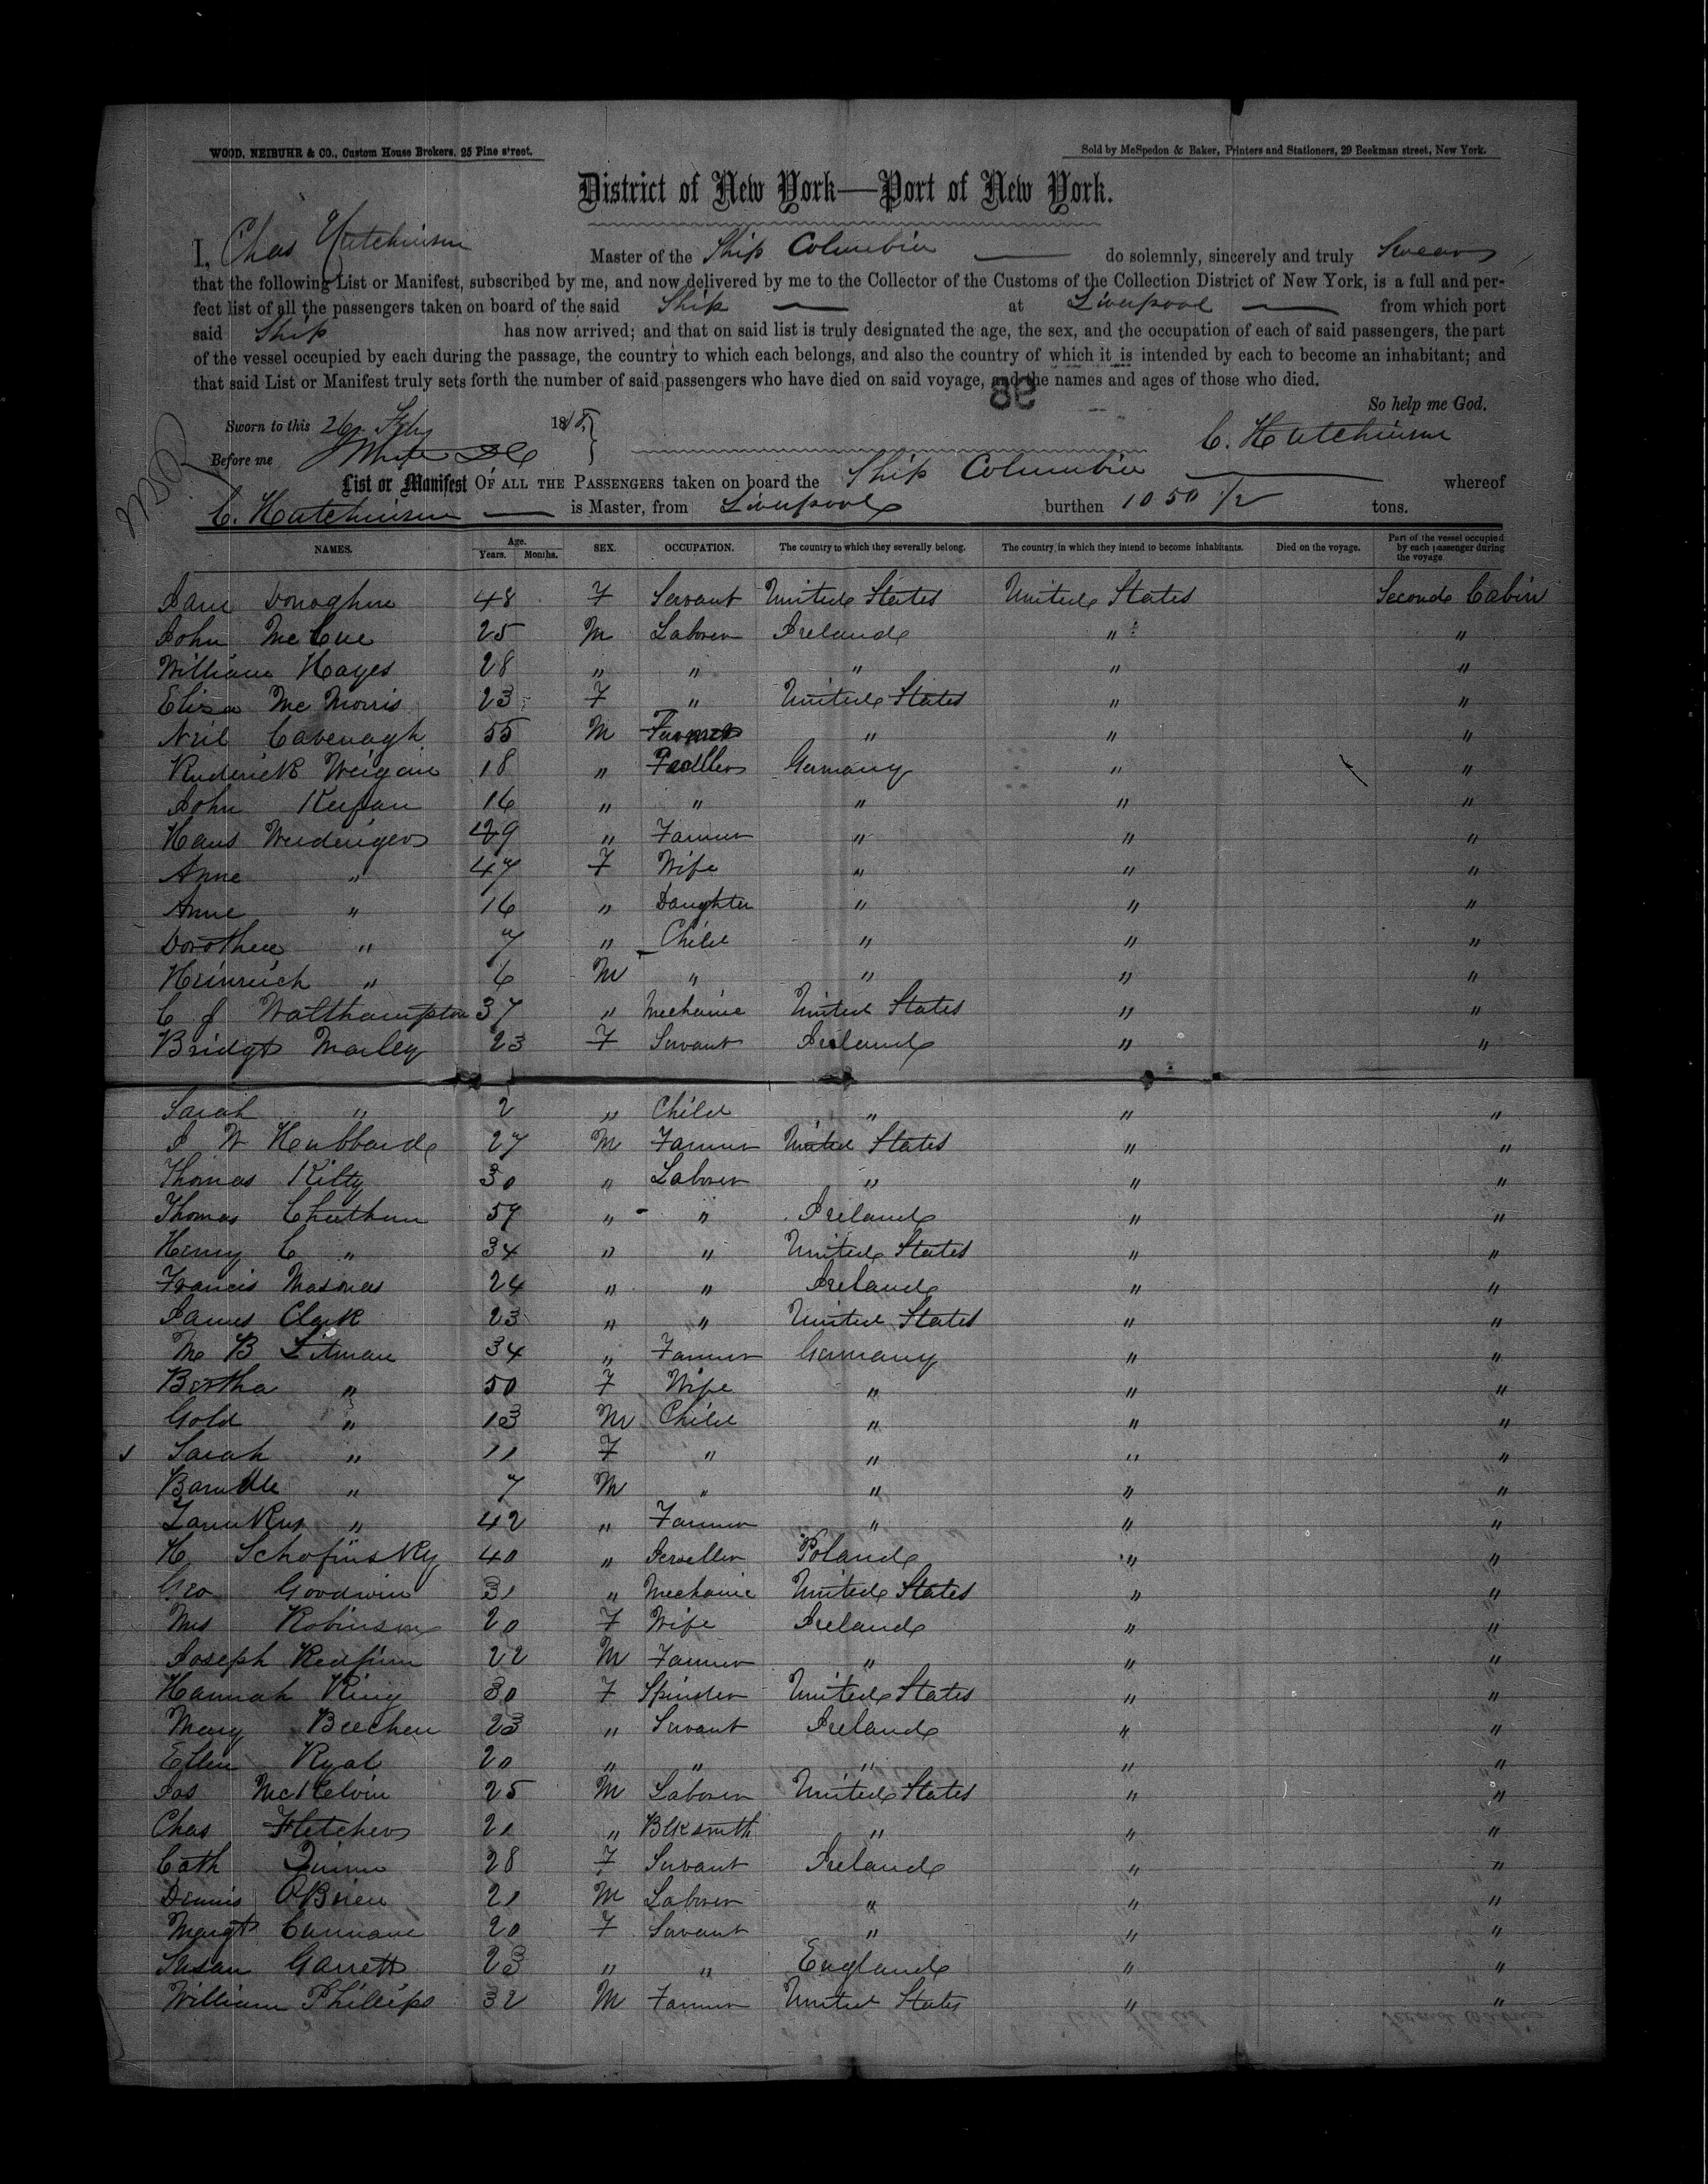 WOOD, NEIBUHR & CO., Custom House Brokers, 25 Pine street. Sold by McSpedon & Baker, Printers and Stationers, 29 Beekman street, New York.
District of New York—Port of New York.
I, Chas Hutchinson Master of the Ship Columbia do solemnly, sincerely and truly Swear
that the following List or Manifest, subscribed by me, and now delivered by me to the Collector of the Customs of the Collection District of New York, is a full and per-
fect list of all the passengers taken on board of the said Ship at Liverpool from which port
said Ship has now arrived; and that on said list is truly designated the age, the sex, and the occupation of each of said passengers, the part
of the vessel occupied by each during the passage, the country to which each belongs, and also the country of which it is intended by each to become an inhabitant; and
that said List or Manifest truly sets forth the number of said passengers who have died on said voyage, and the names and ages of those who died.
So help me God.
Sworn to this 26 Feby 18
C. Hutchinson
Before me
List or Manifest OF ALL THE PASSENGERS taken on board the Ship Columbia whereof
C. Hutchinson is Master, from Liverpool burthen 1050 1/2 tons.
NAMES. Age. Years. Months. SEX. OCCUPATION. The country to which they severally belong. The country in which they intend to become inhabitants. Died on the voyage. Part of the vessel occupied by each passenger during the voyage
Jane Donoghue 48 F Servant United States United States Second Cabin
John McCue 25 M Laborer Ireland " "
William Hayes 28 " " " " "
Eliza McMorris 23 F " United States " "
Neil Cavenagh 55 M Farmer " " "
Ruderick Weigan 18 " Pedller Germany " "
John 16 " " " " "
Hans Werdinger 49 " Farmer " " "
Anne " 47 F Wife " " "
Anne " 16 " Daughter " " "
Dorothea " 7 " Child " " "
Heinreich " 6 M " " " "
C J Walthampton 37 " Mechanic United States " "
Bridgt Marley 23 F Servant Ireland " "
Sarah " 2 " Child " " "
J W Hubbard 27 M Farmer United States " "
Thomas Kilty 30 " Laborer " " "
Thomas Cheetham 59 " " Ireland " "
Henry C " 34 " " United States " "
Francis 24 " " Ireland " "
James Clark 23 " " United States " "
B Litman 34 " Farmer Germany " "
Bertha " 50 F Wife " " "
Gold " 13 M Child " " "
Sarah " 11 F " " " "
" 7 M " " " "
" 42 " Farmer " " "
H Schofinsky 40 " Jeweller Poland " "
Geo Goodwin 31 " Mechanic United States " "
Mrs Robinson 20 F Wife Ireland " "
Joseph Redfern 22 M Farmer " " "
Hannah King 30 F Spinster United States " "
Mary Beechen 23 " Servant Ireland " "
Ellen Ryal 20 " " " " "
Jas McKelvin 25 M Laborer United States " "
Chas Fletcher 21 " Blksmith " " "
Cath Quinn 28 F Servant Ireland " "
Dennis OBrien 21 M Laborer " " "
Margt Cunnane 20 F Servant " " "
Susan Garrett 23 " " England " "
William Phillips 32 M Farmer United States " "